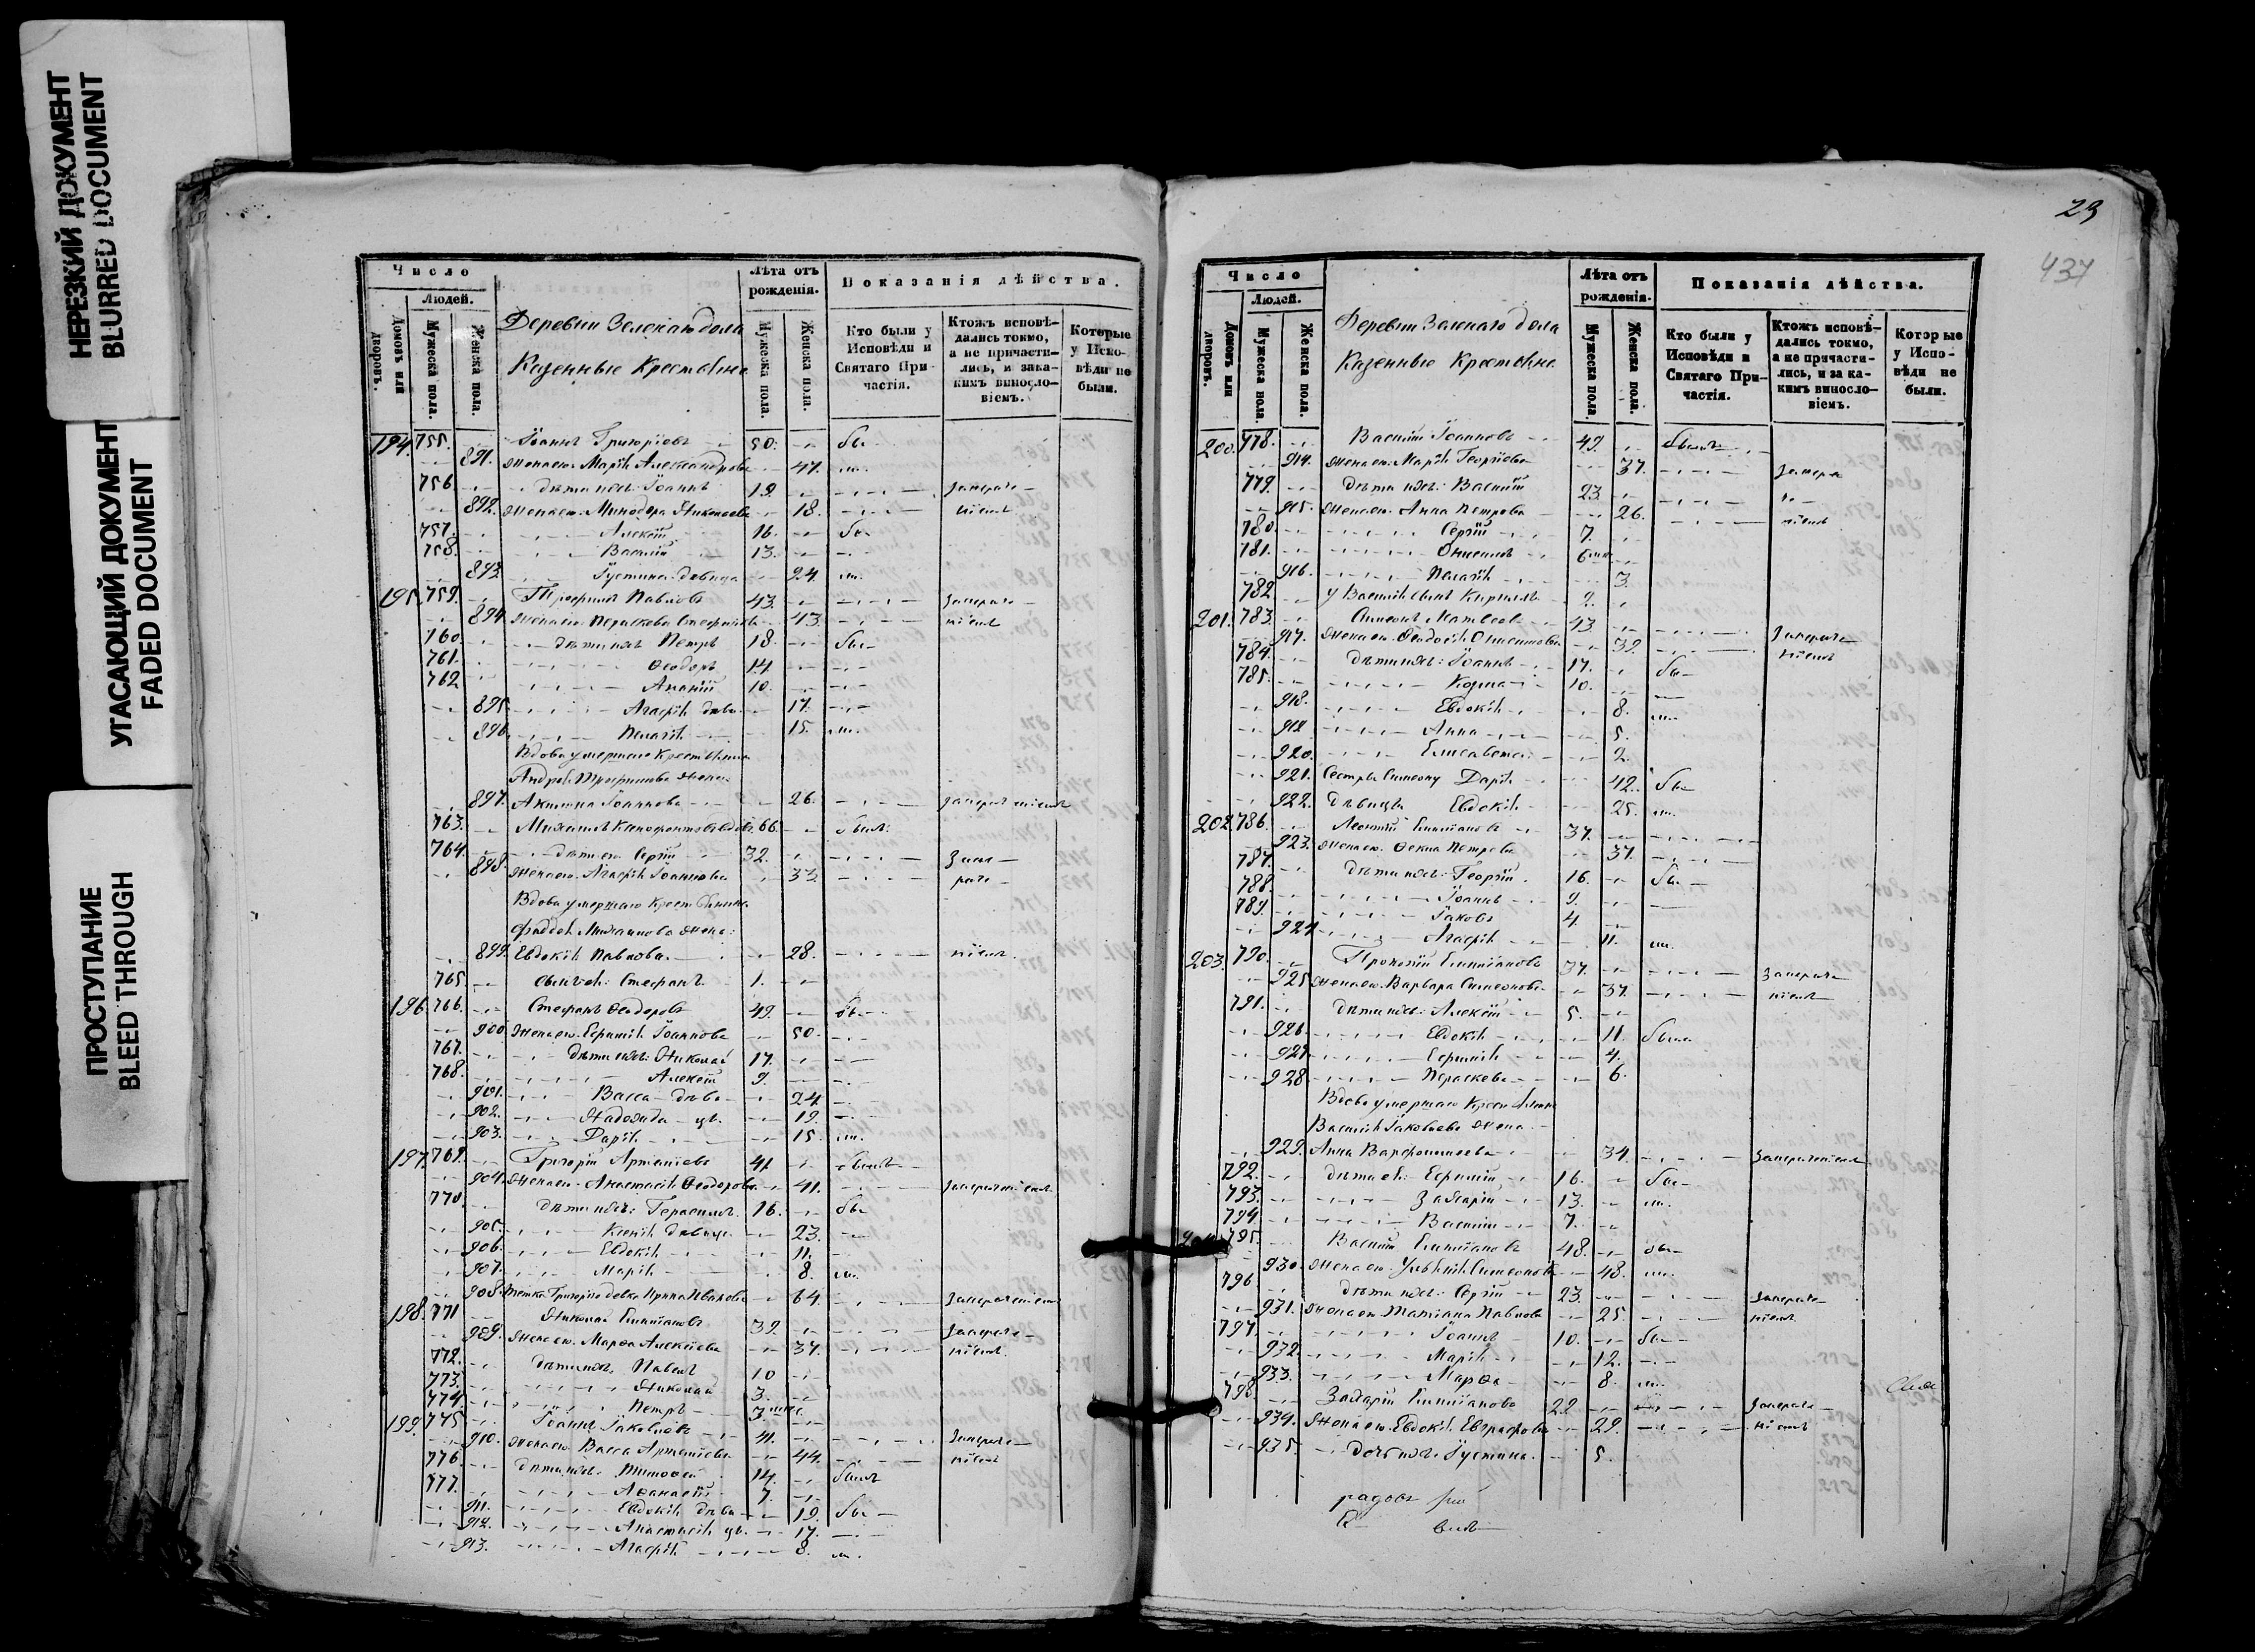 НЕРЕЗКИЙ ДОКУМЕНТ
BLURRED DOCUMENT
УГАСАЮЩИЙ ДОКУМЕНТ
FADED DOCUMENT
ПРОСТУПАНИЕ
BLEED THROUGH
Число
Людей.
Домовъ или дворовъ.
Мужеска пола.
Женска пола.
Деревни Зеленаго дола
Казенные Крестьяне
Лѣта отъ рожденія.
Мужеска пола.
Женска пола.
Показанія дѣйства.
Кто были у Исповѣди и Святаго Причастія.
Ктожъ исповѣдались токмо, а не причастились, и за какимъ винословіемъ.
Которые у Исповѣди не были.
194. 755. Іоаннъ Григоріевъ 50. бы
891. жена ею Марія Александрова 47. ли.
756. дѣти ихъ: Іоаннъ 19.
892. жена ею Минодора Николаева 18.
757. Алексѣй 16. бы
758. Василій 13.
893. Іустина девица 24. ли.
195. 759. Трофимъ Павловъ 43.
894. жена ею Параскева 43.
760. дѣти ихъ Петръ 18. бы
761. Ѳеодоръ 14
762 Ананій 10.
895. Агафія 17.
896. Пелагія 15. ли.
Вдова умершаго Крестьянина
Андрея Трофимова жена
897. Акилина Іоаннова 26.
763. Михаилъ Ксенофонтовъ вдовъ 66. былъ.
764. дѣти ею Сергій 32.
898. жена ею Агафія Іоаннова 33
Вдова умершаго Крестьянина
Фаддея Михаилова жена:
899. Евдокія Павлова 28.
765. сынъ ея: Стефанъ 1.
196. 766. Стефанъ Ѳеодоровъ 49. бы
900. жена ею Евфимія Іоаннова 50.
767. дѣти ихъ: Николай 17.
768. Алексѣй 9.
901. Васса 24
902. Надежда 19.
903. Дарія 15. ли.
197. 769. Григорій Артеміевъ 41
904. жена ею Анастасія Ѳеодорова 41.
770. дѣти ихъ: Герасимъ 16. бы
905. Ксенія девица 23.
906. Евдокія 11.
907. Марія 8. ли.
908. тетка Григорію девка Ирина Иванова 64.
198. 771 Николай Епифановъ 39.
909. жена ею Марѳа Алексѣева 37.
772. дѣти ихъ Павелъ 10
773. Николай 3.
774. Петръ 3
199. 775 Іоаннъ Іаковлевъ 41.
910. жена ею Васса Артеміева 44.
776. дѣти ихъ Тимоѳей 14. былъ
777. Аѳанасій 7.
911. Евдокія 19. бы
912. Анастасія 17.
913. Агафія 8. ли.
23
437
Число
Людей.
Домовъ или дворовъ.
Мужеска пола.
Женска пола.
Деревни Зеленаго дола
Казенные Крестьяне
Лѣта отъ рожденія.
Мужеска пола.
Женска пола.
Показанія дѣйства.
Кто были у Исповѣди и Святаго Причастія.
Ктожъ исповѣдались токмо, а не причастились, и за какимъ винословіемъ.
Которые у Исповѣди не были.
200. 778. Василій Іоанновъ 49. былъ
914. жена ею Марія Георгіева 37.
779. дѣти ихъ: Василій 23
915. жена ею Анна Петрова 26.
780. Сергій 7.
781. Онисимъ 6
916. Пелагія 3.
782. у Василія сынъ Кириллъ 2.
201. 783. Симеонъ Матвеевъ 43
917. жена ею Ѳеодосія 39.
784. дѣти ихъ: Іоаннъ 17. бы
785. Козма 10.
918. Евдокія 8. ли.
919 Анна 5.
920. Елисавета 2.
921. Сестры Симеону Дарія 42. бы
922. девицы Евдокія 25. ли.
202. 786. Леонтій Епифановъ 37.
923. жена ею Ѳекла Петрова 37.
787. дѣти ихъ: Георгій 16. бы
788. Іоаннъ 9.
789. Іаковъ 4.
924 Агафія 11. ли.
203. 790. Прокопій Епифановъ 37.
925 жена ею Варвара Симеонова 37.
791. дѣти ихъ: Алексѣй 5.
926. Евдокія 11. была
927 Евфимія 4.
928 Параскева 6.
Вдова умершаго Крестьянина
Василія Іаковлева жена
929. Анна Варфоломеева 34.
792. дѣти ея: Евфимій 16. бы
793. Захарій 13. ли.
794. Василій 7.
204 795. Василій Епифановъ 48. бы
930. жена ею Симеонова 48. ли.
796 дѣти ихъ: Сергій 23.
931. жена ею Татіана Павлова 25.
797. Іоаннъ 10. бы
932. Марія 12.
933. Марѳа 8. ли.
798 Захарій Епифановъ 29
934. жена ею Евдокія Евграфова 29.
935. дочь ихъ Іустина 5.